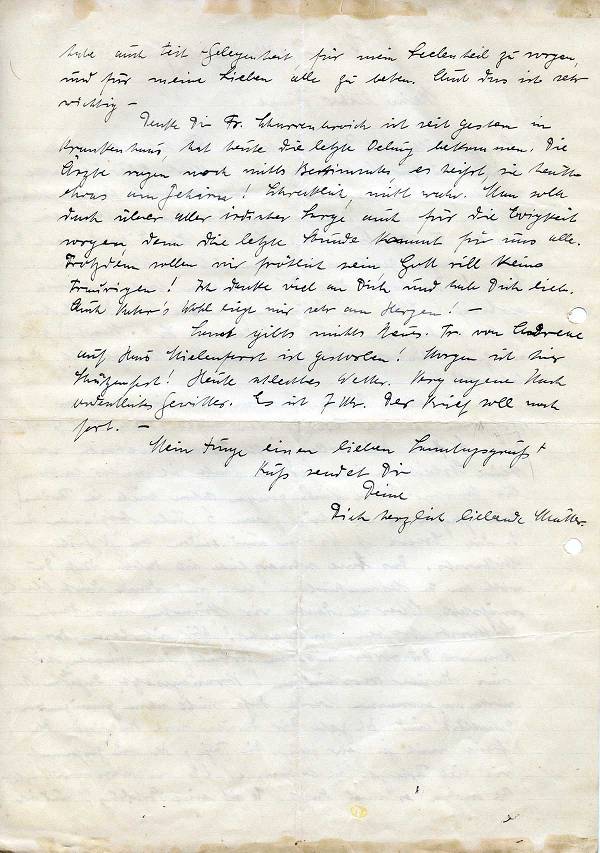 habe auch Zeit Gelegenheit, für mein Seelenheil zu sorgen,
und für meine Lieben alle zu beten. Und das ist sehr
wichtig –
Denke Dir Fr. ist seit gestern im
Krankenhaus, hat heute die letzte Oelung bekommen. Die
Ärzte sagen noch nichts Bestimmtes, es heißt, sie hätte
etwas am Gehirn! Schrecklich, nicht wahr. Man soll
doch über aller irdischer Sorge auch für die Ewigkeit
sorgen, denn die letzte Stunde kommt für uns alle.
Trotzdem sollen wir fröhlich sein, Gott will keine
Traurigen! Ich denke viel an Dich und hab Dich lieb.
Auch Vater's Wohl liegt mir sehr am Herzen! –
Sonst gibts nichts Neues. Fr. von
auf Haus ist gestorben! Morgen ist hier
Schützenfest! Heute schlechtes Wetter. Vergangene Nacht
ordentliches Gewitter. Es ist 7 Uhr. Der Brief soll noch
fort. –
Mein Junge einen lieben Sonntagsgruß +
Kuß sendet Dir
Deine
Dich herzlich liebende Mutter.